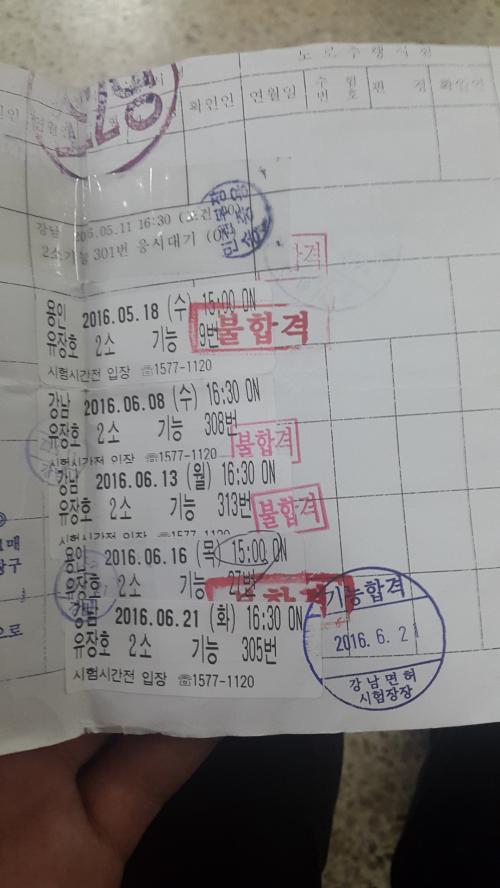 도로주행시험
확인인 연월일 수험번호 판정 확인인
강남 2016.05.11 16:30
2소 기능 301번 응시대기 (ON)
용인 2016.05.18 (수) 15:00 ON
유장호 2소 기능 9번
불합격
시험시간전 입장 ☏1577-1120
강남 2016.06.08 (수) 16:30 ON
유장호 2소 기능 308번
불합격
시험시간전 입장 ☏1577-1120
강남 2016.06.13 (월) 16:30 ON
유장호 2소 기능 313번
불합격
시험시간전 입장 ☏1577-1120
용인 2016.06.16 (목) 15:00 ON
유장호 2소 기능 27번
강남 2016.06.21 (화) 16:30 ON
유장호 2소 기능 305번
시험시간전 입장 ☏1577-1120
기능합격
2016. 6. 21
강남면허
시험장장
으로